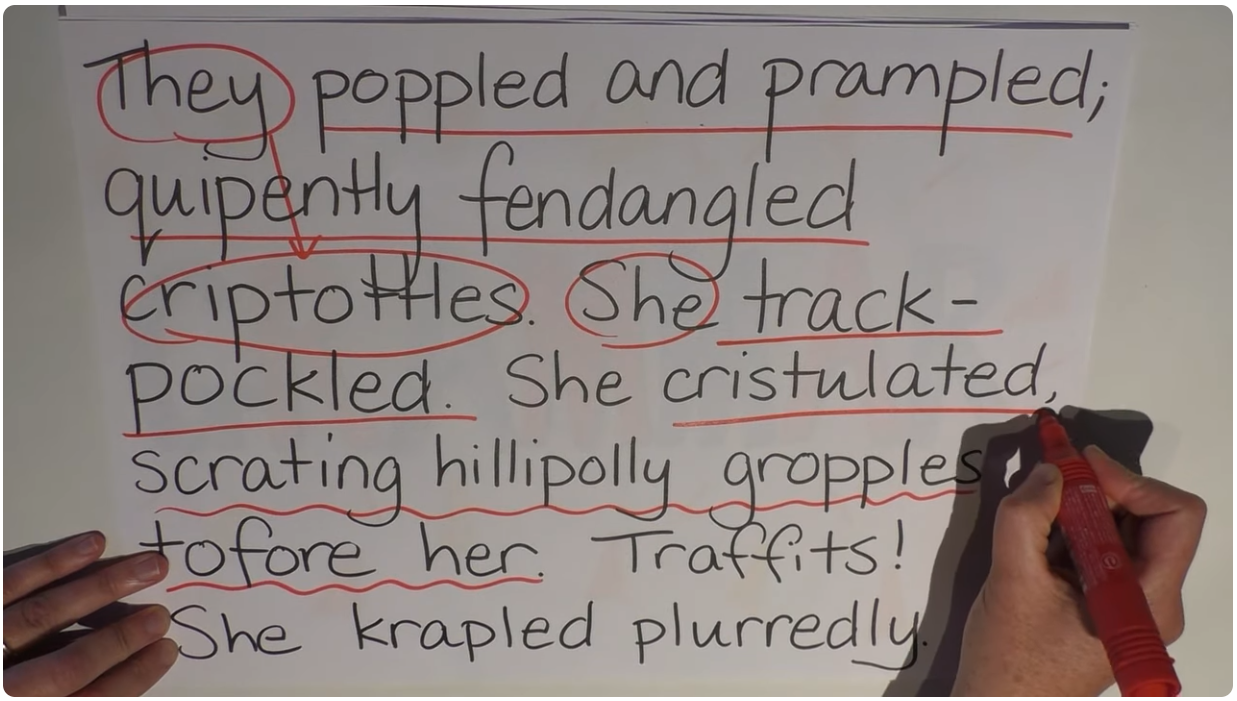 They poppled and prampled;
quipently fendangled
criptottles. She track-
pockled. She cristulated,
scrating hillipolly gropples
tofore her. Traffits!
She krapled plurredly.